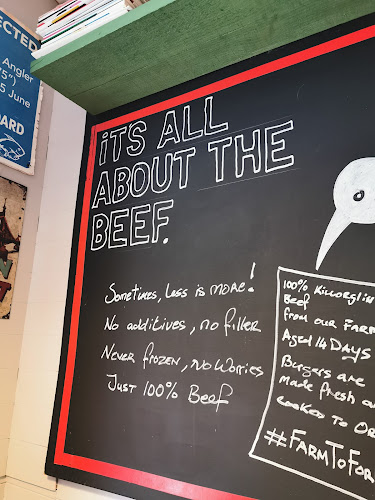 ECTED
Angler
5")
5 June
ARD
iTS ALL
ABOUT THE
BEEF.
Sometimes, Less is more!
No additives, no filler
Never frozen, no worries
Just 100% Beef
100% Killorglin
Beef
from our Farm
Aged 14 Days
Burgers are
made fresh
cooked to Or
#FarmToFor